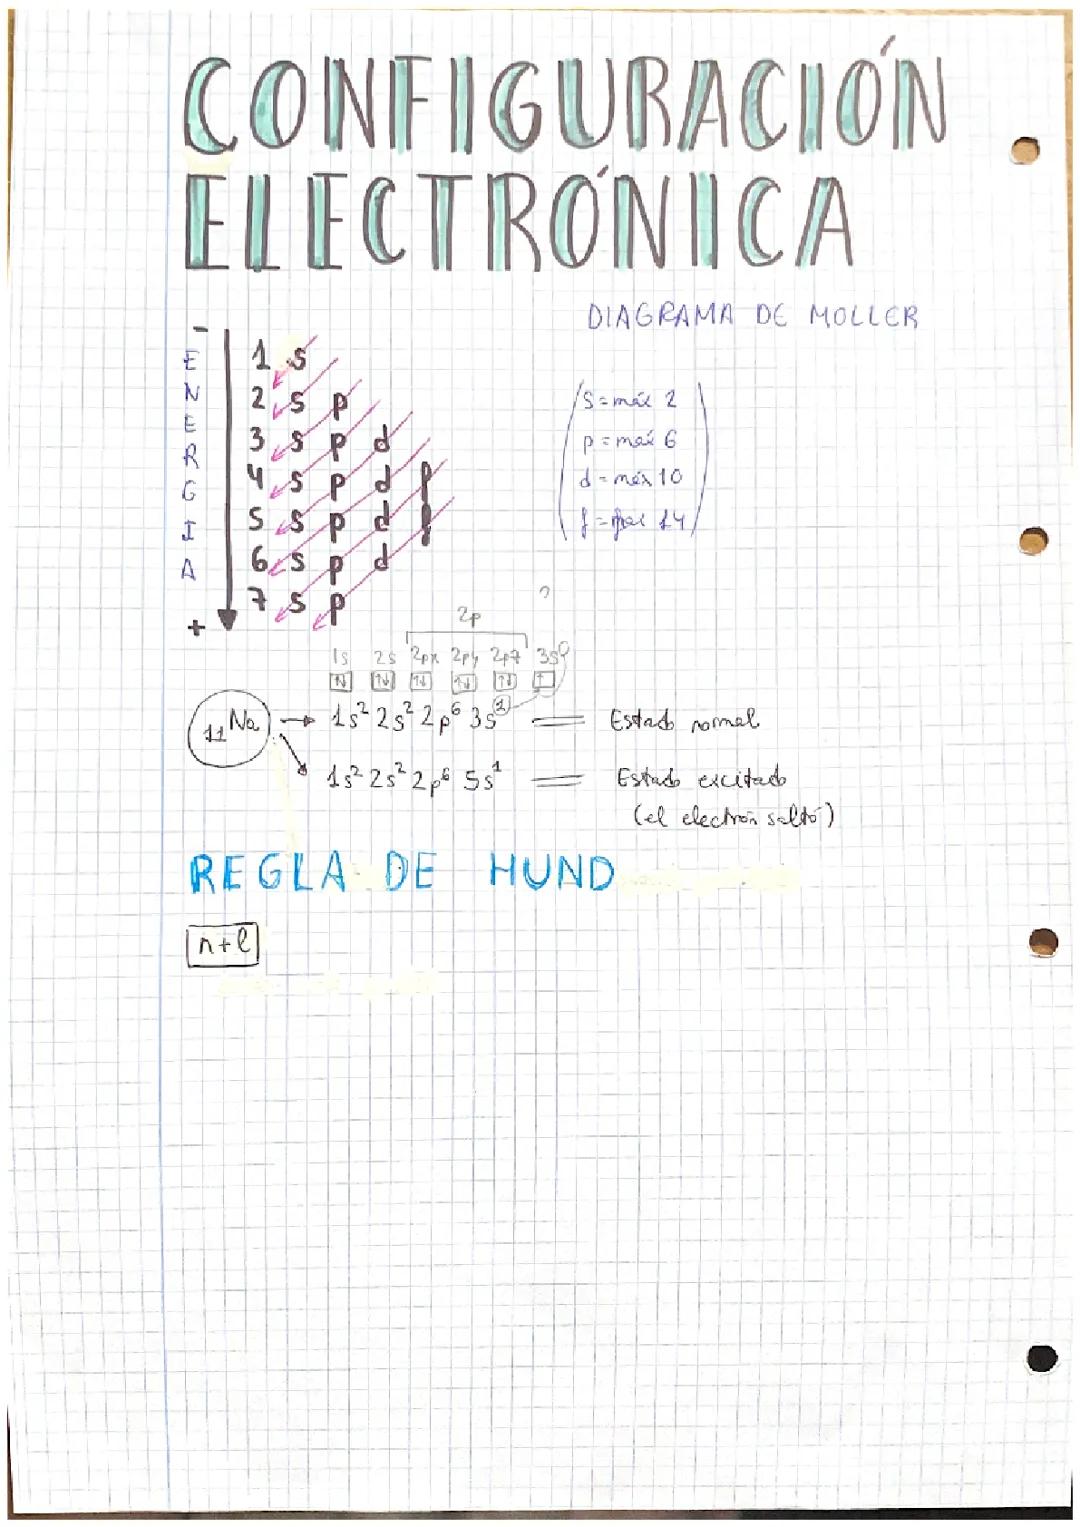 CONFIGURACIÓN
ELECTRÓNICA
DIAGRAMA DE MOLLER
-
ENERGIA
+
1 s
2 s p
3 s p d
4 s p d f
5 s p d f
6 s p d
7 s p
s = máx 2
p = máx 6
d = máx 10
f = max 14
?
2p
1s 2s 2px 2py 2pz 3s
↑↓ ↑↓ ↑↓ ↑↓ ↑↓ ↑
₁₁Na → 1s² 2s² 2p⁶ 3s¹ = Estado normal
1s² 2s² 2p⁶ 5s¹ = Estado excitado
(el electrón saltó)
REGLA DE HUND
n+l